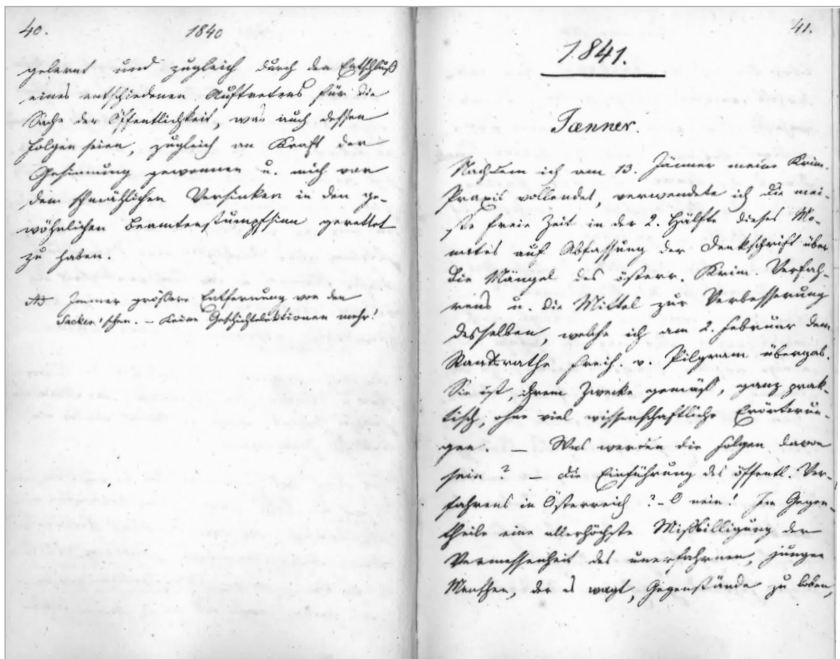 40.
1840
gelernt und zugleich durch den Entschluß
eines entschiedenen Auftretens für die
Sache der Öffentlichkeit, was auch dessen
Folgen seien, zugleich an Kraft der
Gesinnung gewonnen u. mich vor
dem schmählichen Versinken in den ge-
wöhnlichen Beamtenstumpfsinn gerettet
zu haben.
Immer größere Entfernung von den
'schen. – Keine Geschichtslektionen mehr!
41.
1841.
Jænner.
Nachdem ich am 13. Jänner meine Krim.
Praxis vollendet, verwendete ich die mei-
ste freie Zeit in der 2. Hälfte dieses Mo-
nates auf Abfassung der Denkschrift über
die Mängel des österr. Krim. Verfah-
rens u. die Mittel zur Verbesserung
desselben, welche ich am 2. Februar dem
Staatsrathe Freih. v. Pilgram übergab.
Sie ist, ihrem Zwecke gemäß, ganz prak-
tisch, ohne viel wissenschaftliche Erörterun-
gen. – Was werden die Folgen davon
sein? – die Einführung des öffentl. Ver-
fahrens in Österreich? – O nein! Im Gegen-
theile eine allerhöchste Mißbilligung der
Vermessenheit des unerfahrnen, jungen
Menschen, der es wagt, Gegenstände zu